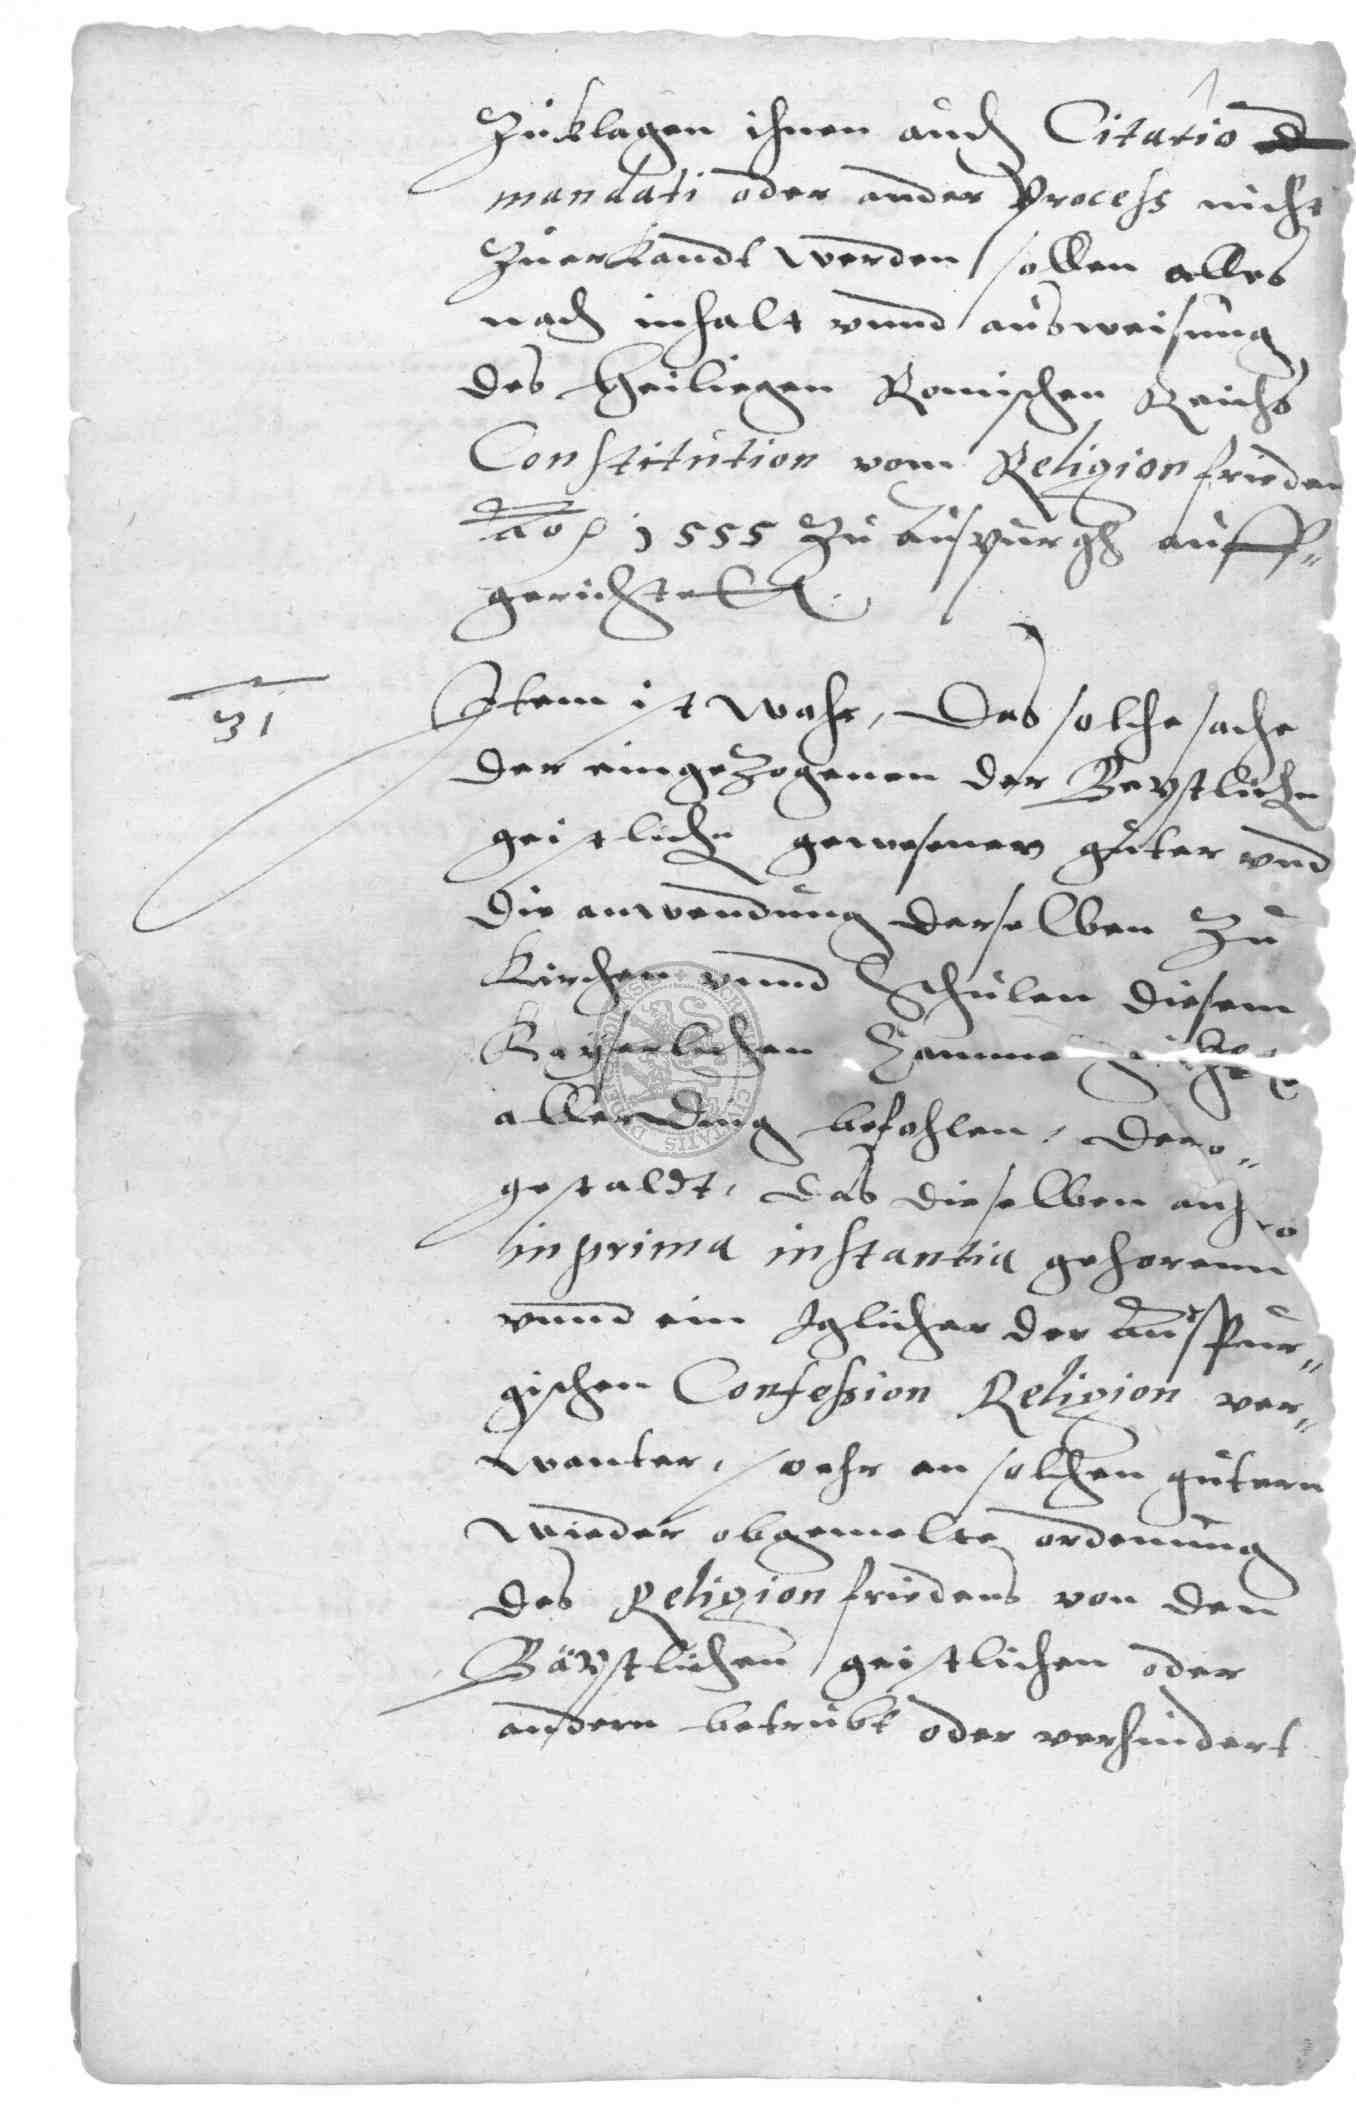 Zuklagen ihnen auch Citatio
mandati oder ander Process nicht
Zuerkandt werden sollen alles
nach inhalt vnnd ausweisung
des Heiliegen Romischen Reichs
Constitution vom Religionfrieden
ao 1555 Zu Auspurgh auff-
gerichtett
31
Item ist wahr, Das solche sache
der eingezogenen der Bepstlichen
geistlichen gewesener guter vnd
die anwendung derselben Zu
Kirchen vnnd Schulen diesem
Kayserlichen Camme
aller Ding befohlen, Dero-
gestaldt, das dieselben anhero
in prima instantia gehorenn
vnnd ein Iglicher der Auspur-
gischen Confession Religion ver-
wanter, so ehr an solchen gutern
wieder obgemelte ordenung
des Religionfriedens von den
Bäpstlichen geistlichen oder
andern betrubt oder verhindert